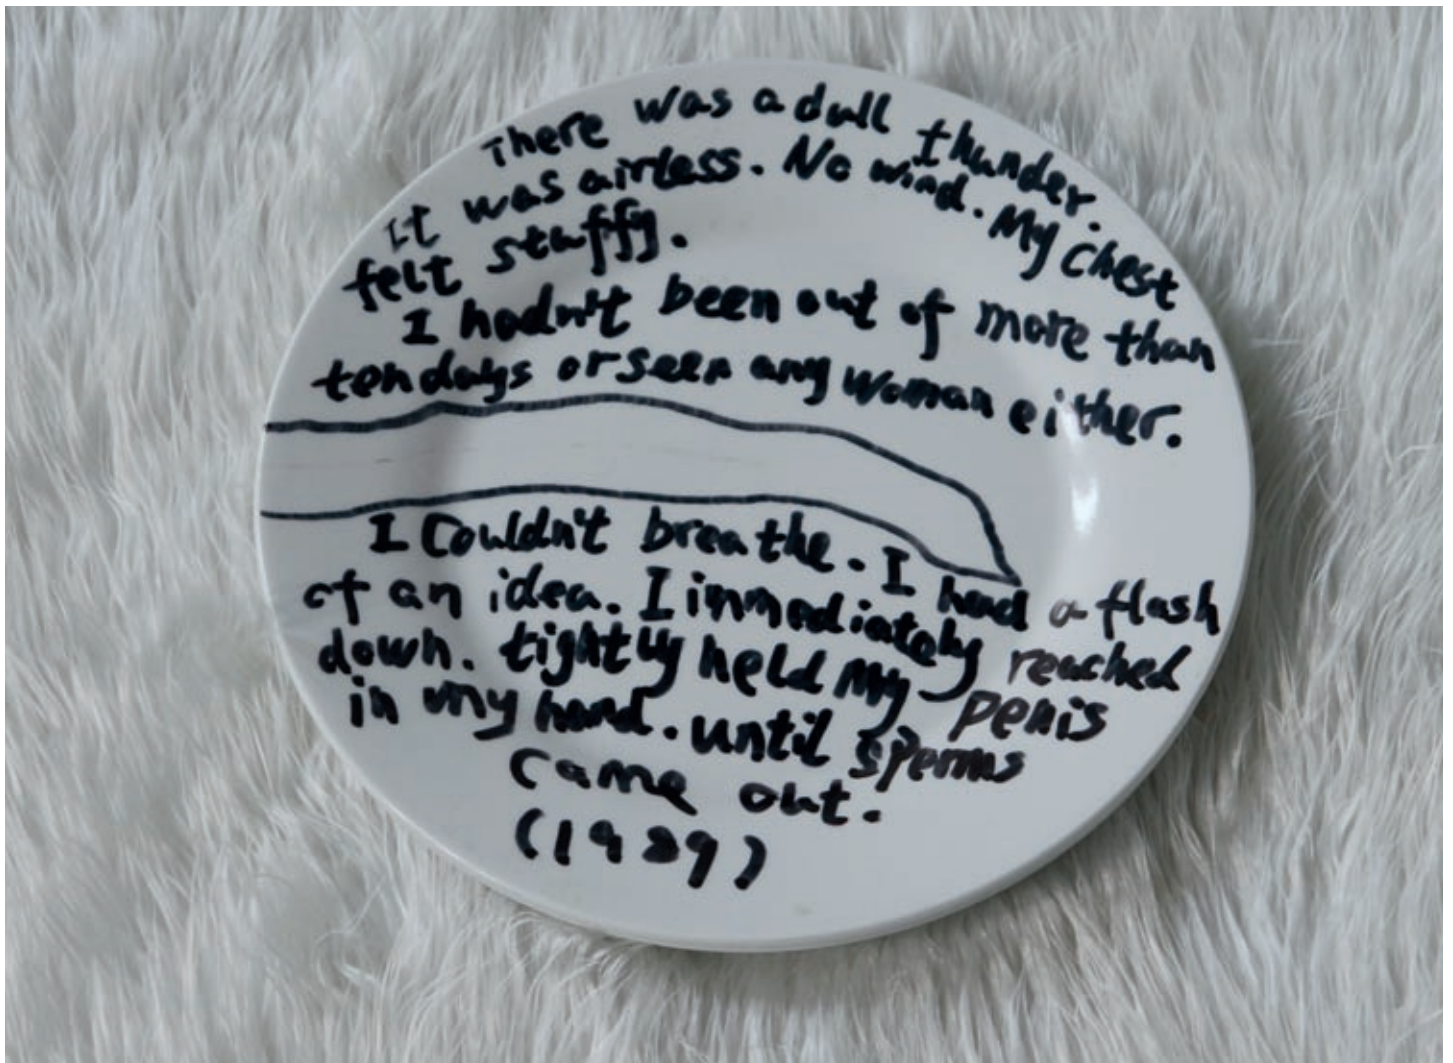 There was a dull thunder.
It was airless. No wind. My chest
felt stuffy.
I hadn't been out of more than
ten days or seen any woman either.
I couldn't breathe. I had a flash
of an idea. I immediately reached
down. tightly held my penis
in my hand. until sperms
came out.
(1989)